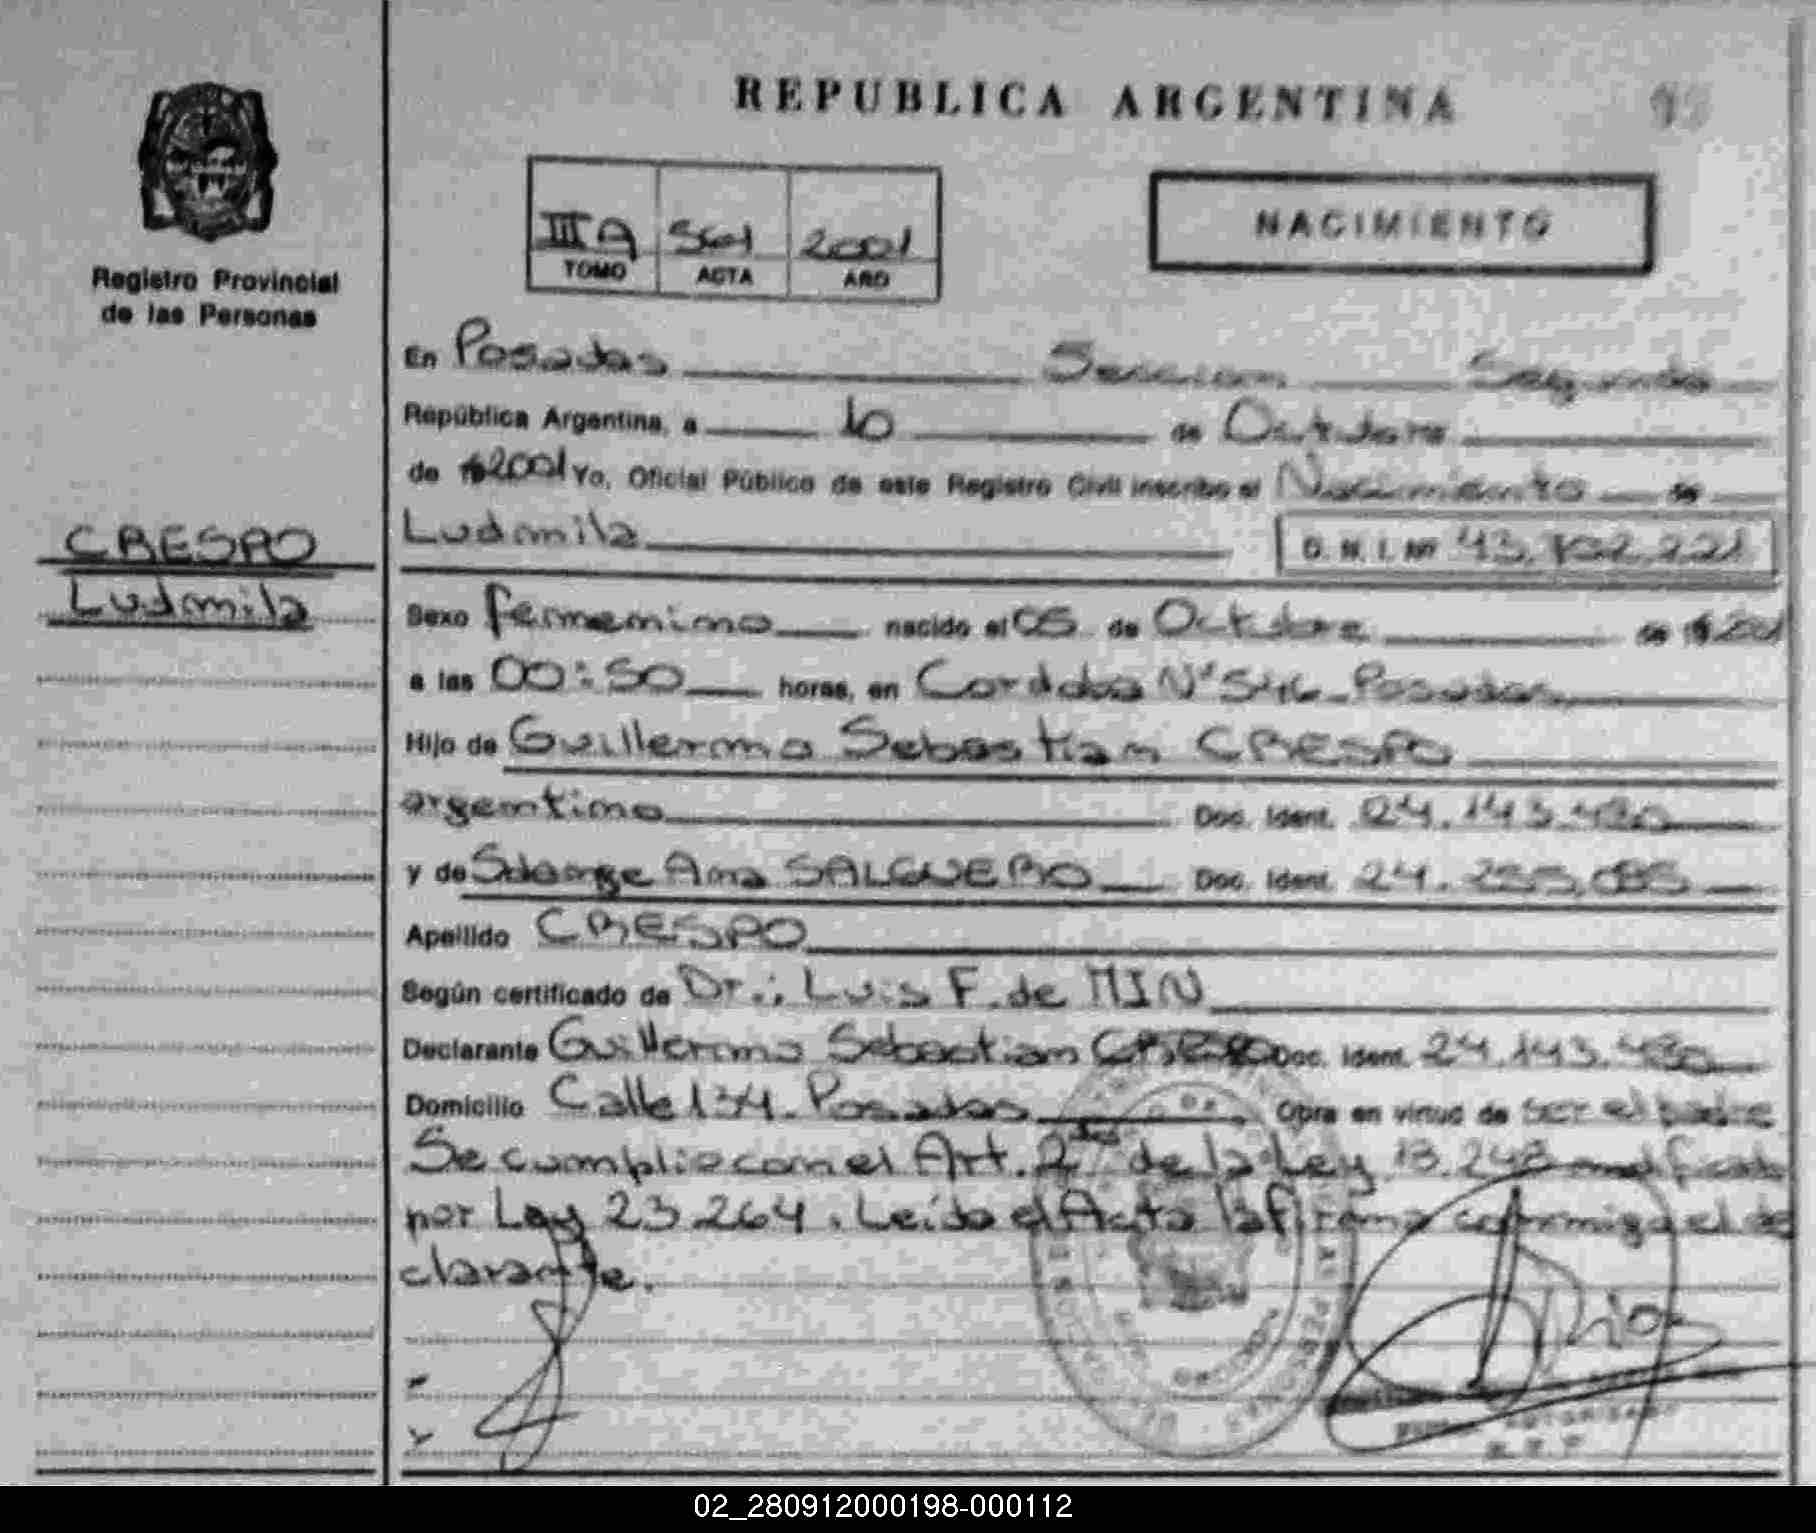 REPUBLICA ARGENTINA
Registro Provincial
de las Personas
III A 561 2001
TOMO ACTA AÑO
NACIMIENTO
En Posadas Seccion Segunda
República Argentina, a 10 de Octubre
de 2001 Yo, Oficial Público de este Registro Civil inscribo el Nacimiento de
CRESPO
Ludmila
Ludmila D. N. I. Nº 43.
Sexo femenino nacido el 05 de Octubre de
a las 00:50 horas, en Cordoba Nº 546 - Posadas
Hijo de Guillermo Sebastian CRESPO
argentino Doc. Ident. 24.143.480
y de Solange Ana SALGUERO Doc. Ident. 24.255.085
Apellido CRESPO
Según certificado de Dr.: Luis F. de MIN
Declarante Guillermo Sebastian CRESPO Doc. Ident. 24.143.480
Domicilio Calle 134 - Posadas Obra en virtud de ser el padre
Se cumplio con el Art. de la Ley 13.248
por Ley 23.264. Leida el Acta la firma conmigo el de
clarante.
Rios
02_280912000198-000112